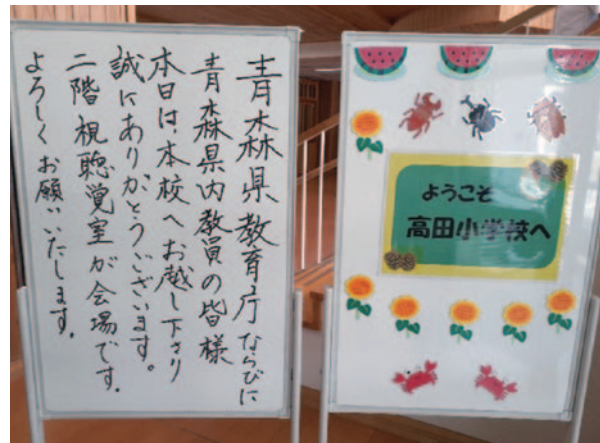 青森県教育庁ならびに
青森県内教員の皆様
本日は、本校へお越し下さり
誠にありがとうございます。
二階視聴覚室が会場です。
よろしくお願いいたします。
ようこそ
高田小学校へ